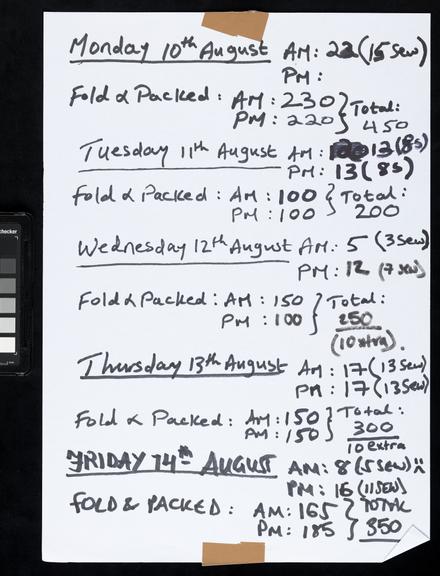 Monday 10th August AM: 22 (15 sew)
PM:
Fold & Packed: AM: 230 } Total:
PM: 220 } 450
Tuesday 11th August AM: 13 (8s)
PM: 13 (8s)
Fold & Packed: AM: 100 } Total:
PM: 100 } 200
Wednesday 12th August AM: 5 (3 sew)
PM: 12 (7 sew)
Fold & Packed: AM: 150 } Total:
PM: 100 } 250
(10 extra).
Thursday 13th August AM: 17 (13 sew)
PM: 17 (13 sew)
Fold & Packed: AM: 150 } Total:
PM: 150 } 300
10 extra
FRIDAY 14th AUGUST AM: 8 (5 sew) :(
PM: 16 (11 SEW)
FOLD & PACKED: AM: 165 } TOTAL
PM: 185 } 350